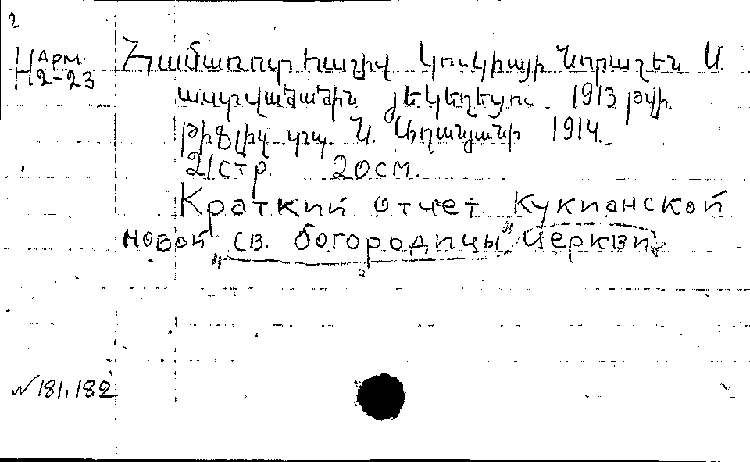 2
Н Арм.
2-23
Համառոտ հաշիվ Կուկիայի Նորաշեն Ս
աստվածածին եկեղեցու 1913 թվի
թիֆլիս տպ. Ն. Աղանյանի 1914.
21стр 20см.
Краткий отчет Кукианской
новой „св. богородицы" Церкви.
N 181,182